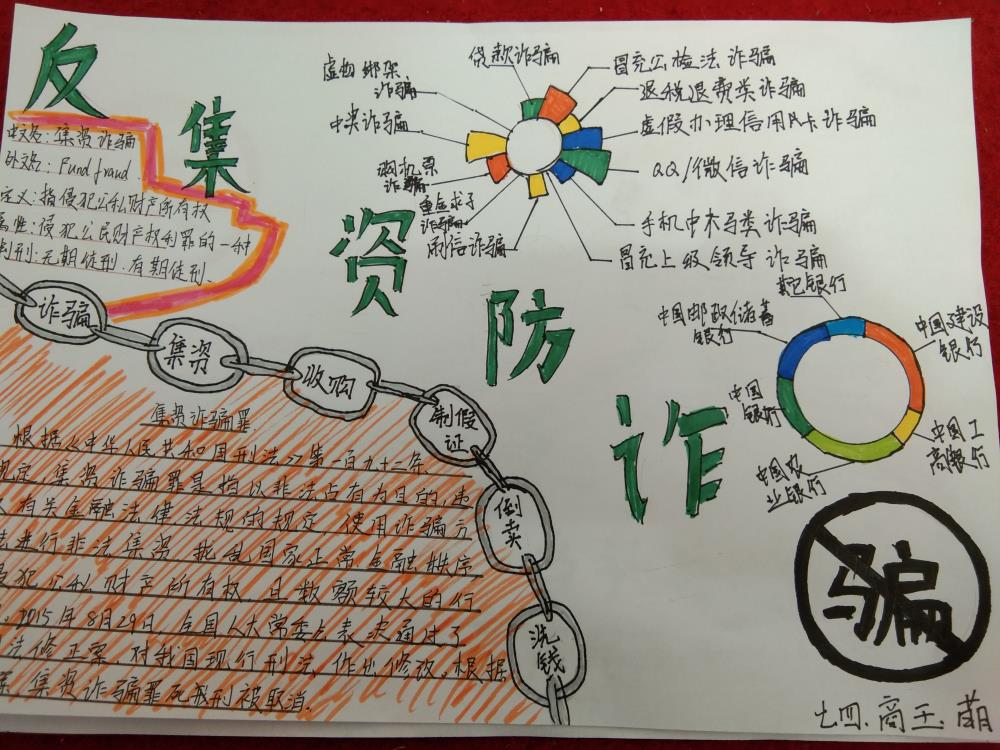 反集资防诈
中文名:集资诈骗
外文名:Fund fraud
定义:指侵犯公私财产所有权
侵犯公民财产权利罪的一种
刑:无期徒刑.有期徒刑.
贷款诈骗
虚拟绑架
诈骗
中央诈骗
诈骗
重金求子
诈骗
诈骗
冒充公检法诈骗
退税退费类诈骗
虚假办理信用卡诈骗
QQ/微信诈骗
手机中木马类诈骗
冒充上级领导诈骗
其它银行
中国邮政储蓄
银行
中国建设
银行
中国
银行
中国工
商银行
中国农
业银行
诈骗
集资
收购
制假
证
倒卖
洗钱
集资诈骗罪
根据《中华人民共和国刑法》第一百九十二条
规定,集资诈骗罪是指以非法占有为目的,违
有关金融法律法规的规定,使用诈骗方
法进行非法集资,扰乱国家正常金融秩序
侵犯公私财产所有权,且数额较大的行
2015年8月29日,全国人大常委会表决通过了
法修正案,对我国现行刑法作出修改.根据
集资诈骗罪死刑被取消.
骗
七四.商王.萌